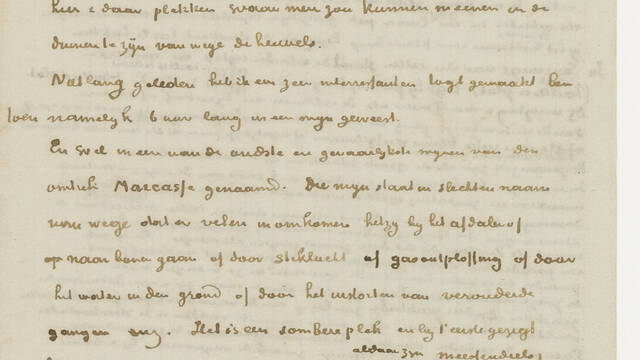 hier & daar plekken waar men zou kunnen meenen in de
duinen te zijn van wege de heuvels.
Niet lang geleden heb ik een zeer interressanten togt gemaakt ben
toen namelijk 6 uur lang in een mijn geweest.
En wel in een van de oudste en gevaarlijkste mijnen van den
omtrek Marcasse genaamd. Die mijn staat in slechten naam
van wege dat er velen in omkomen hetzij bij het afdalen of
op naar boven gaan of door stiklucht of gasontploffing of door
het water in den grond of door het instorten van verouderde
gangen enz. Het is een sombere plek en bij 't eerste gezigt
aldaar zijn meestendeels